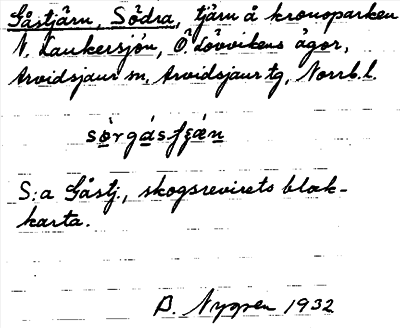 Gåstjärn, Södra, tjärn å kronoparken
N. Laukersjön, Ö. Lövvikens ägor,
Arvidsjaur sn, Arvidsjaur tg, Norrb. l.
sørgásfʒæn
S:a Gåstj., skogsrevirets blak-
karta.
B. Nygren 1932